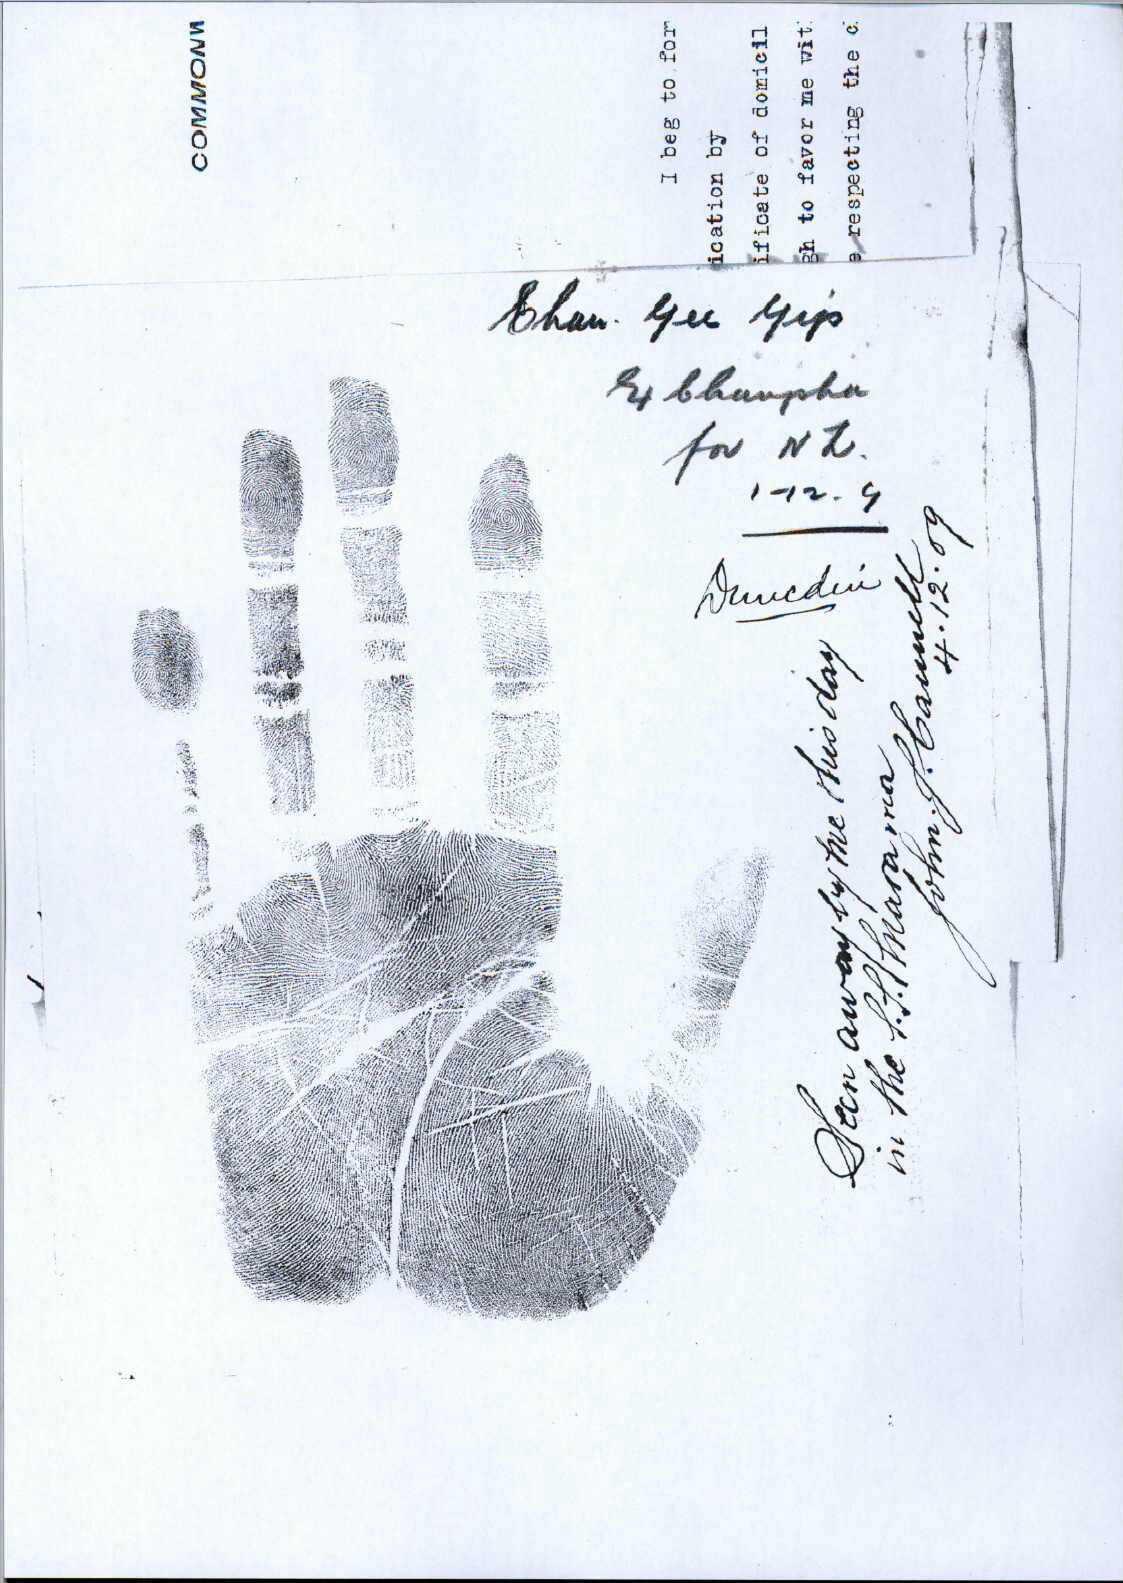 COMMONW
I beg to for
ication by
ificate of domicil
gh to favor me wit
e respecting the c
Chan Yee Yip
Ex Changsha
for N Z.
1-12-9
Dunedin
Seen away by me this day
in the S.S. Manama
John J. Cannell
4.12.09